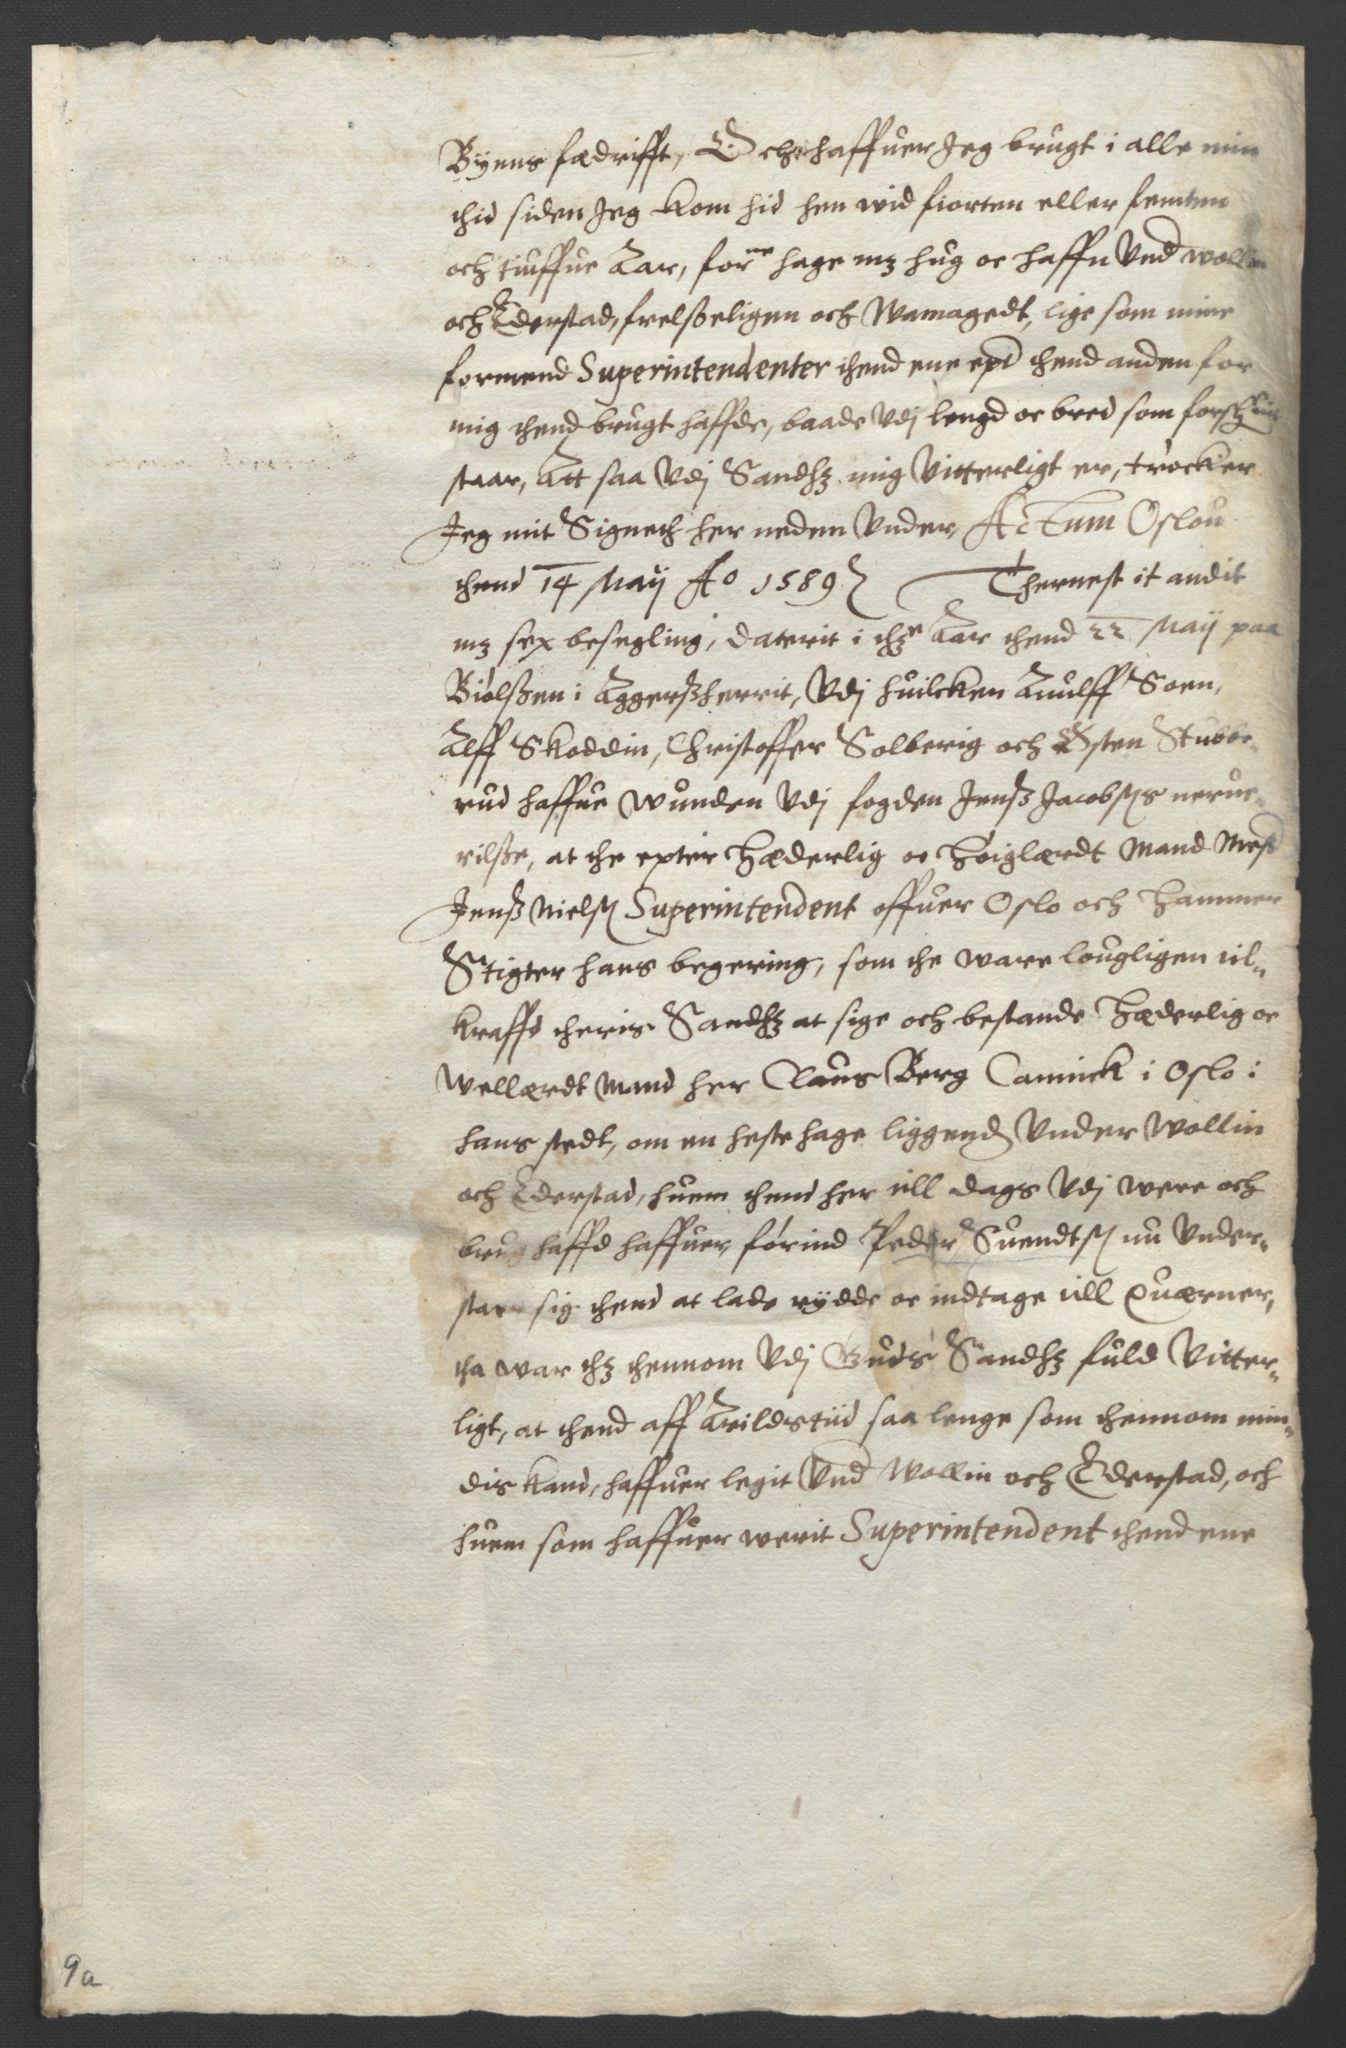 Byens fædrifft, Och haffuer Jeg brugt i alle min
thid siden Jeg kom hid hen wid fiorten eller femten
och tiuffue Aar, forne hage mz hug oc haffn Vnd wollin
och Ederstad, frelßeligen och Wamagedt, lige som mine
formend Superintendenter thend ene ept thend anden for
mig thend brugt haffde, baade Vdj lengd oc bred som
staar, Att saa Vdj Sandhz mig Vitterligt er, trøcker
Jeg mit Signeth her neden Vnder, Actum Oslou
thend 14 Maij Ao 1589 Thernest it andit
mz sex besegling, daterit i thz Aar thend 22 Maij paa
Biølßen i Aggerßherrit, Vdj huilcken Anulff Soen,
Alff Skøddin, Christoffer Solberig och Østen Stubbe
rud haffue Wunden Vdj fogden Jenß Jacobsøs neruer-
rilße, at the epter Hæderlig oc Høiglærdt Mand Mest
Jenß Nielsø Superintendent offuer Oslo och Hammer
Stigter hans begering, som the ware lougligen til-
kraffd theris Sandhz at sige och bestande Hæderlig oc
Wellærdt Mand her Claus Berg Cannick i Oslo i
hans stedt, om en hestehage liggend Vnder Wollin
och Ederstad, huem thend her till dags Vdj were och
brug haffd haffuer, førind Peder Suendtsø nu Vnder-
staar sig thend at lade rydde oc indtage till Quærner,
tha war thz thennom Vdj Guds Sandhz fuld Vitter-
ligt, at thend aff Arildstiid saa lenge som thennom min-
dis kand, haffuer legit Vnd Wollin och Ederstad, och
huem som haffuer werit Superintendent thend ene
9a